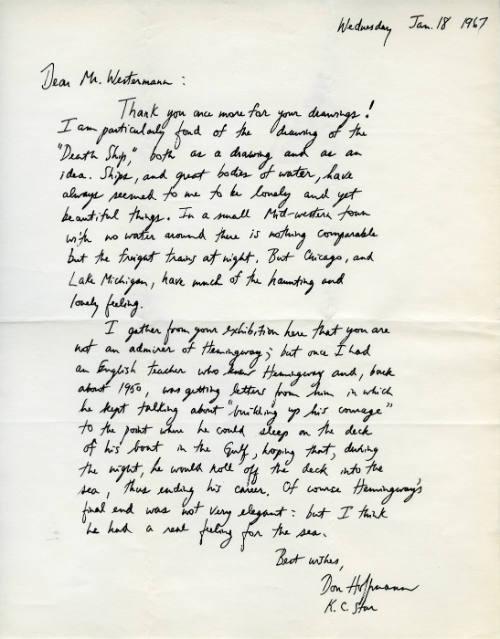 Wednesday Jan. 18 1967
Dear Mr. Westermann:
Thank you once more for your drawings!
I am particularly fond of the drawing of the
"Death Ship," both as a drawing and as an
idea. Ships, and great bodies of water, have
always seemed to me to be lonely and yet
beautiful things. In a small Mid-western town
with no water around there is nothing comparable
but the freight trains at night. But Chicago, and
Lake Michigan, have much of the haunting and
lonely feeling.
I gather from your exhibition here that you are
not an admirer of Hemingway; but once I had
an English teacher who knew Hemingway and, back
about 1950, was getting letters from him in which
he kept talking about "building up his courage"
to the point where he could sleep on the deck
of his boat in the Gulf, hoping that, during
the night, he would roll off the deck into the
sea, thus ending his career. Of course Hemingway's
final end was not very elegant: but I think
he had a real feeling for the sea.
Best wishes,
Don Hoffmann
K.C. Star